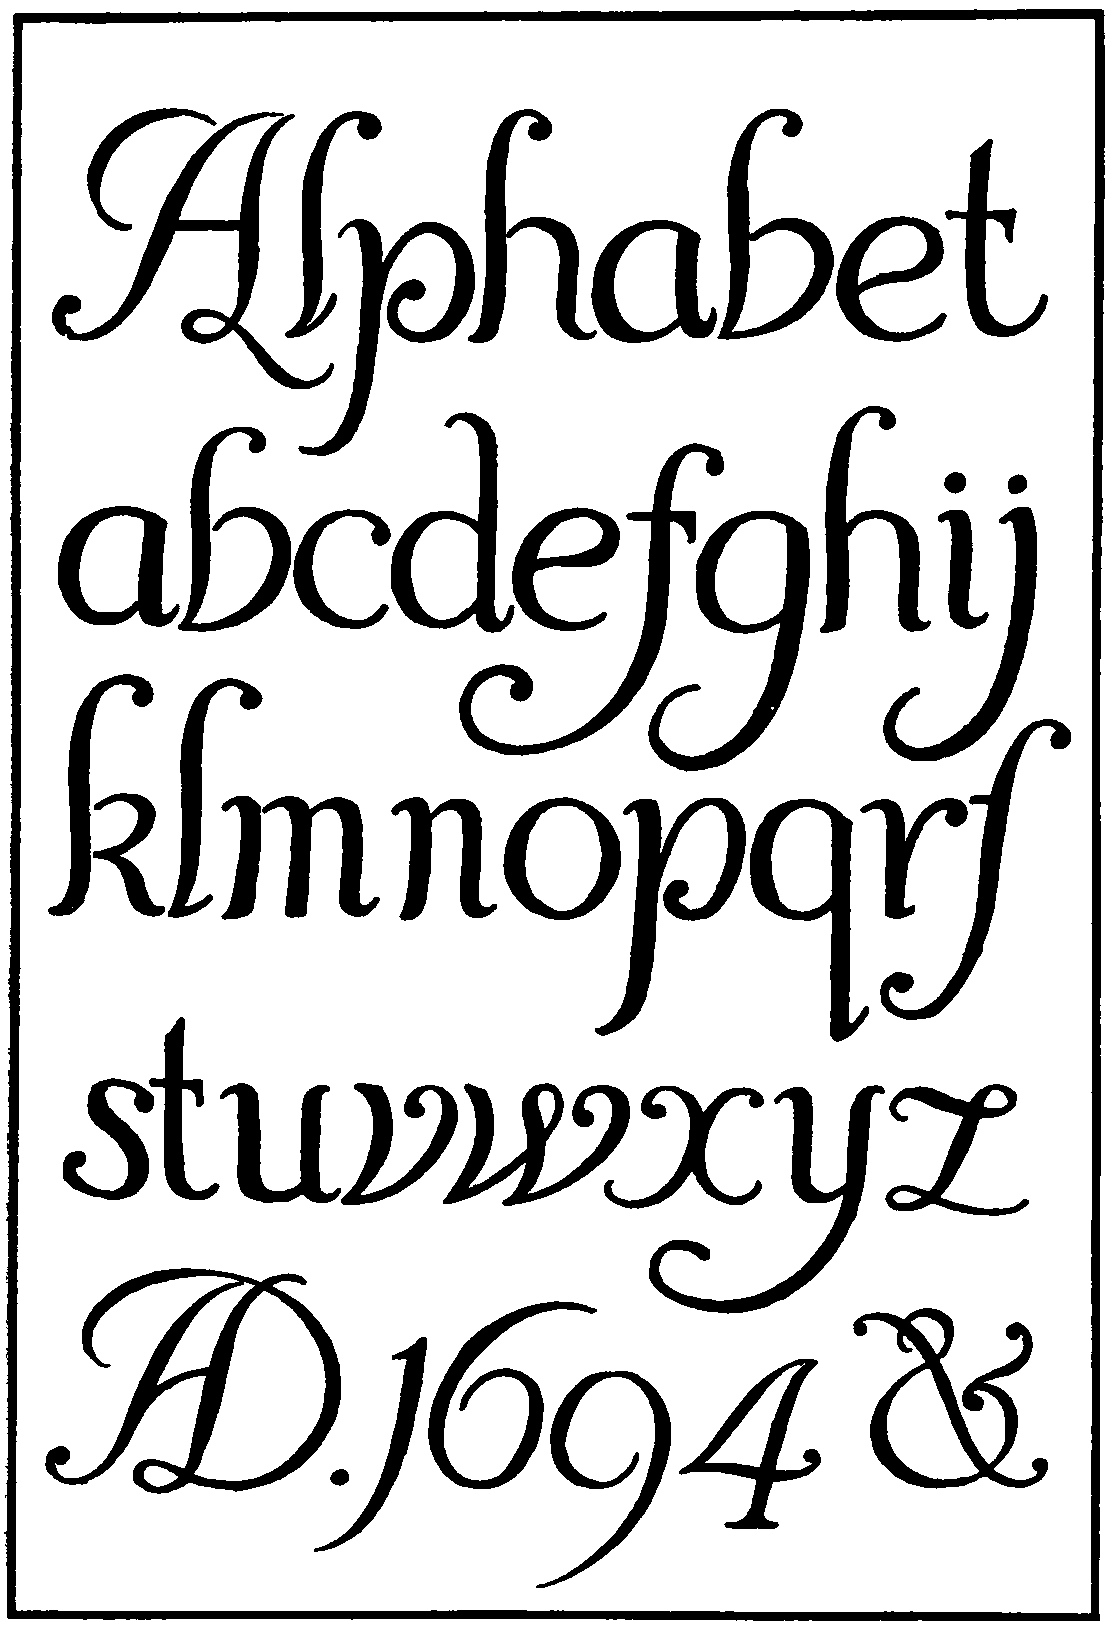 Alphabet
abcdefghij
klmnopqrſ
stuvwxyz
AD. 1694 &